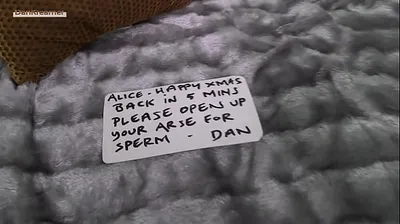 Dankreamer
ALICE - HAPPY XMAS
BACK IN 5 MINS
PLEASE OPEN UP
YOUR ARSE FOR
SPERM - DAN